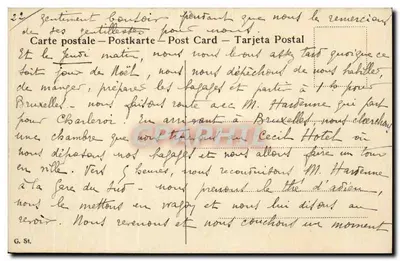 2)
gentiment bonsoir pendant que nous le remercions
de ses gentillesses pour nous.
Carte postale – Postkarte – Post Card – Tarjeta Postal
Et le jeudi matin, nous nous levons assez tard quoique ce
soit jour de Noël, nous nous dépêchons de nous habiller,
de manger, préparer les bagages et partir à 1 h pour
Bruxelles - nous faisons route avec M. Hardenne qui part
pour Charleroi. En arrivant à Bruxelles, nous cherchons
une chambre que nous trouvons au Cecil Hotel où
nous déposons nos bagages et nous allons faire un tour
en ville. Vers heures, nous reconduisons M. Hardenne
à la Gare du Sud - nous prenons le thé d'adieu,
nous le mettons en wagon et nous lui disons au
revoir. Nous revenons et nous couchons un moment
G. St.